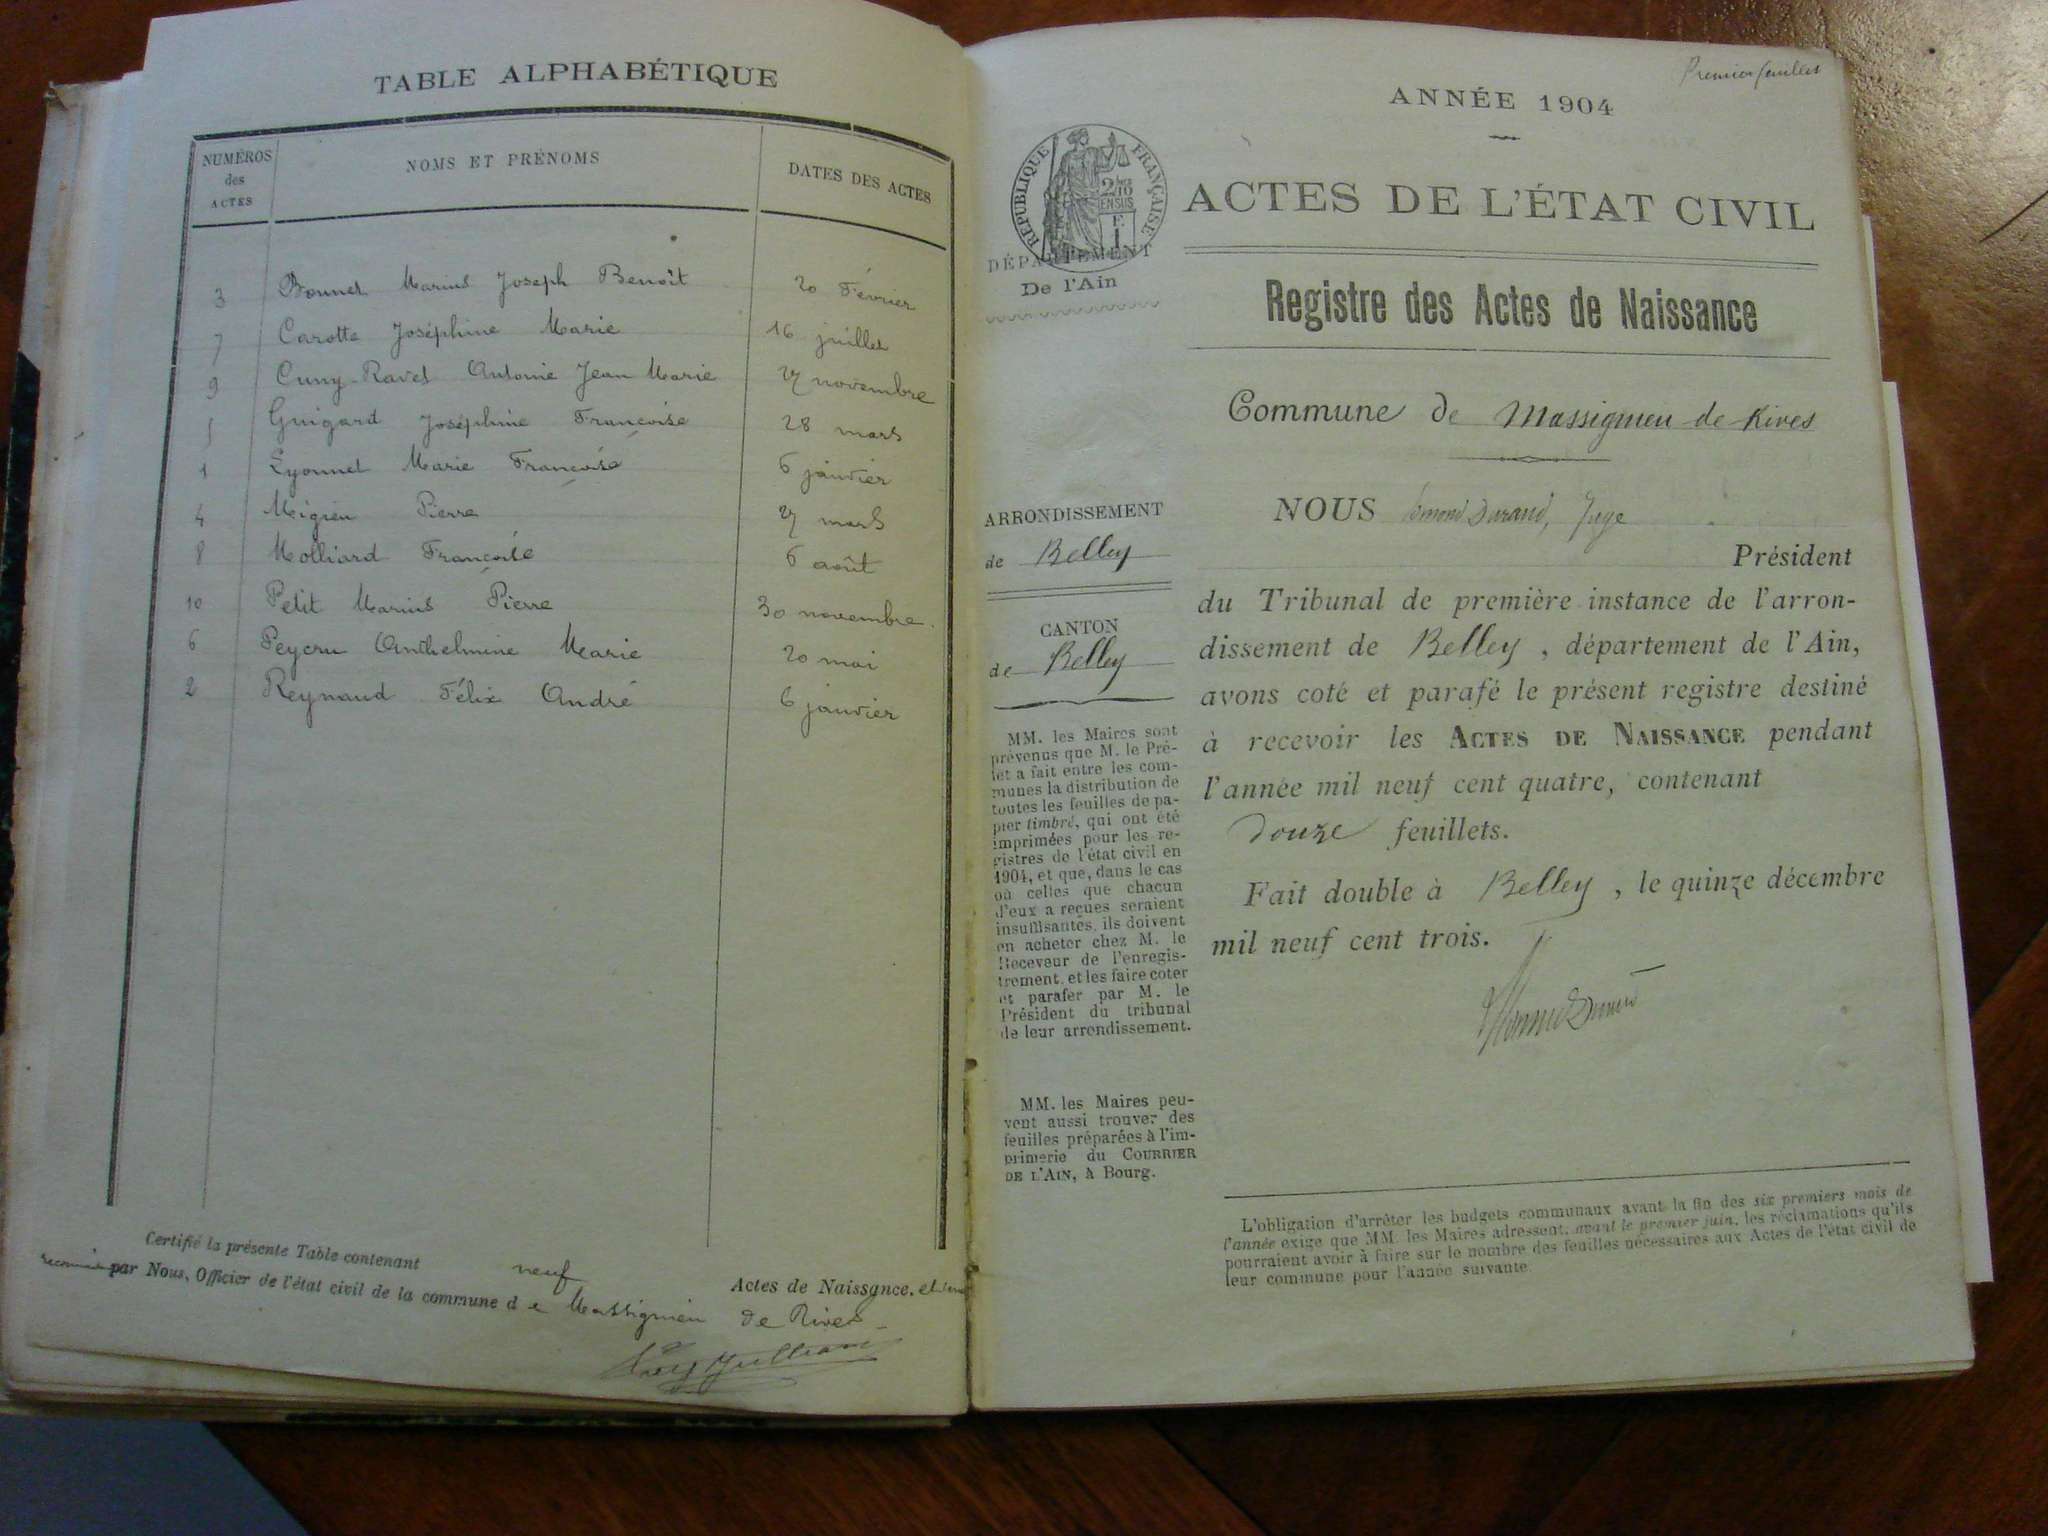 TABLE ALPHABÉTIQUE
NUMÉROS des ACTES NOMS ET PRÉNOMS DATES DES ACTES
3 Bonnet Marius Joseph Benoît 20 Février
7 Carotte Joséphine Marie 16 juillet
9 Cuny-Ravet Antoine Jean Marie 27 novembre
5 Guigard Joséphine Françoise 28 mars
1 Lyonnet Marie Françoise 6 janvier
4 Migieu Pierre 27 mars
8 Molliard Françoise 6 août
10 Petit Marius Pierre 30 novembre.
6 Peycru Anthelmine Marie 20 mai
2 Reynaud Félix André 6 janvier
Certifié la présente Table contenant neuf Actes de Naissance, et
par Nous, Officier de l'état civil de la commune de Massignieu de Rives
Premier feuillet
ANNÉE 1904
RÉPUBLIQUE FRANÇAISE
2/10 EN SUS
F. 1
ACTES DE L'ÉTAT CIVIL
DÉPARTEMENT
De l'Ain
Registre des Actes de Naissance
Commune de Massignieu de Rives
ARRONDISSEMENT
de Belley
CANTON
de Belley
MM. les Maires sont
prévenus que M. le Pré-
fet a fait entre les com-
munes la distribution de
toutes les feuilles de pa-
pier timbré, qui ont été
imprimées pour les re-
gistres de l'état civil en
1904, et que, dans le cas
où celles que chacun
d'eux a reçues seraient
insuffisantes, ils doivent
en acheter chez M. le
Receveur de l'enregis-
trement, et les faire coter
et parafer par M. le
Président du tribunal
de leur arrondissement.
MM. les Maires peu-
vent aussi trouver des
feuilles préparées à l'im-
primerie du COURRIER
DE L'AIN, à Bourg.
NOUS Edmond Durand, Juge
Président
du Tribunal de première instance de l'arron-
dissement de Belley, département de l'Ain,
avons coté et parafé le présent registre destiné
à recevoir les ACTES DE NAISSANCE pendant
l'année mil neuf cent quatre, contenant
douze feuillets.
Fait double à Belley, le quinze décembre
mil neuf cent trois.
L'obligation d'arrêter les budgets communaux avant la fin des six premiers mois de
l'année exige que MM. les Maires adressent, avant le premier juin, les réclamations qu'ils
pourraient avoir à faire sur le nombre des feuilles nécessaires aux Actes de l'état civil de
leur commune pour l'année suivante.